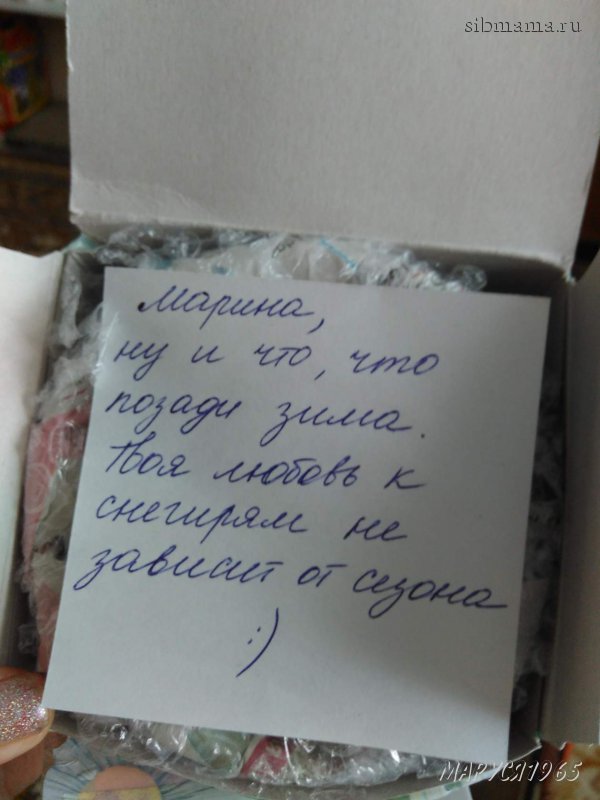 sibmama.ru
Марина,
ну и что, что
позади зима.
Твоя любовь к
снегирям не
зависит от сезона
:)
МАРУСЯ1965